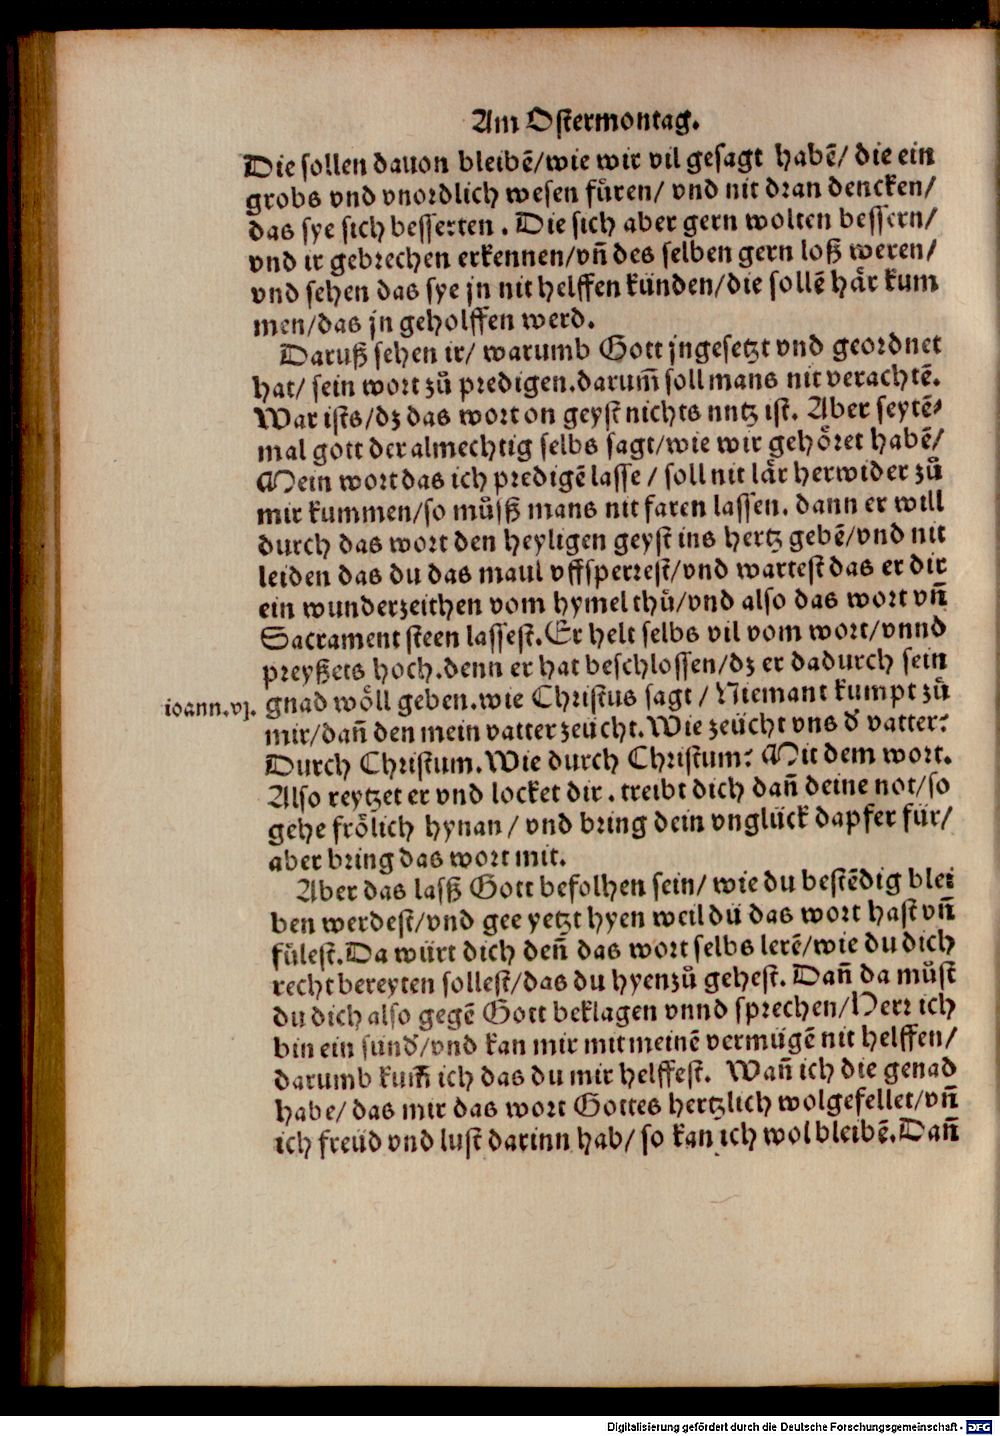 Am Ostermontag.
Die sollen dauon bleibẽ/wie wir vil gesagt habẽ/ die ein
grobs vnd vnordlich wesen fuͤren/ vnd nit dran dencken/
das sye sich besserten. Die sich aber gern wolten bessern/
vnd ir gebrechen erkennen/vñ des selben gern loß weren/
vnd sehen das sye jn nit helffen künden/die sollẽ haͤr kum
men/das jn geholffen werd.
Daruß sehen ir/ warumb Gott jngesetzt vnd geordnet
hat/ sein wort zuͦ predigen.darum̃ soll mans nit verachtẽ.
War ists/dz das wort on geyst nichts nutz ist. Aber seytẽ⸗
mal gott der almechtig selbs sagt/wie wir gehoͤret habẽ/
Mein wort das ich predigẽ lasse / soll nit laͤr herwider zuͦ
mir kummen/so muͦsß mans nit faren lassen. dann er will
durch das wort den heyligen geyst ins hertz gebẽ/vnd nit
leiden das du das maul vffsperrest/vnd wartest das er dir
ein wunderzeithen vom hymel thuͦ/vnd also das wort vñ
Sacrament steen lassest.Er helt selbs vil vom wort/vnnd
preyßets hoch.denn er hat beschlossen/dz er dadurch sein
ioann.vj. gnad woͤll geben.wie Christus sagt / Niemant kumpt zuͦ
mir/dañ den mein vatter zeücht.Wie zeücht vns d' vatter?
Durch Christum.Wie durch Christum? Mit dem wort.
Also reytzet er vnd locket dir. treibt dich dañ deine not/so
gehe froͤlich hynan / vnd bring dein vnglück dapfer für/
aber bring das wort mit.
Aber das lasß Gott befolhen sein/ wie du bestẽdig blei
ben werdest/vnd gee yetzt hyen weil dü das wort hast vñ
fuͤlest.Da würt dich deñ das wort selbs lerẽ/wie du dich
recht bereyten sollest/das du hyenzuͦ gehest. Dañ da muͦst
du dich also gegẽ Gott beklagen vnnd sprechen/Herr ich
bin ein sund'/vnd kan mir mit meinẽ vermügẽ nit helffen/
darumb kum̃ ich das du mir helffest. Wañ ich die genad
habe/ das mir das wort Gottes hertzlich wolgefellet/vñ
ich freüd vnd lust darinn hab/ so kan ich wol bleibẽ.Dañ
Digitalisierung gefördert durch die Deutsche Forschungsgemeinschaft - DFG